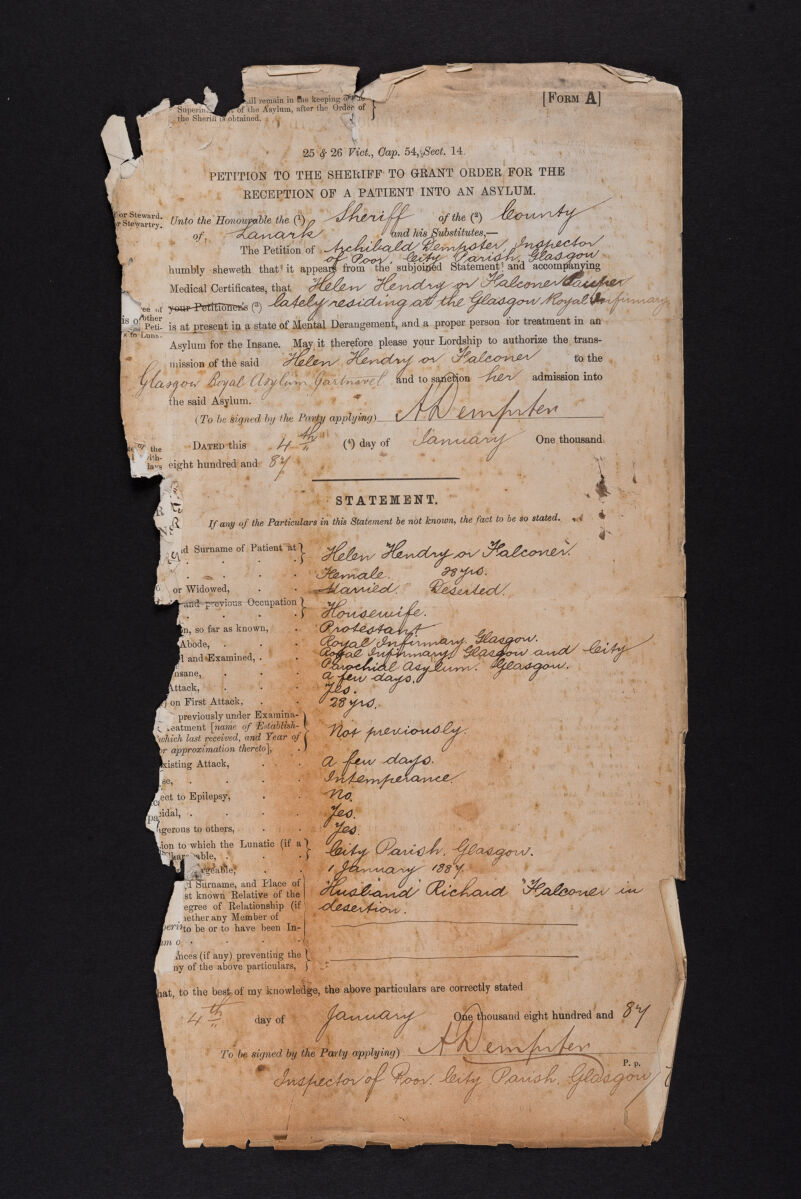 ll remain in the keeping of the
Superin of the Asylum, after the Order of
the Sheriff is obtained.
[FORM A]
25 & 26 Vict., Cap. 54, Sect. 14.
PETITION TO THE SHERIFF TO GRANT ORDER FOR THE
RECEPTION OF A PATIENT INTO AN ASYLUM.
or Steward.
r Stewartry.
Unto the Honourable the (1) Sheriff of the (2) County
of, Lanark and his Substitutes,—
The Petition of Archibald Dempster, Inspector
of Poor, City Parish, Glasgow
humbly sheweth that it appears from the subjoined Statement and accompanying
Medical Certificates, that Helen Hendry or Falconer Pauper
your Petitioner's (3) lately residing at the Glasgow Royal Infirmary
other
Peti-
Luna-
is at present in a state of Mental Derangement, and a proper person for treatment in an
Asylum for the Insane. May it therefore please your Lordship to authorize the trans-
mission of the said Helen Hendry or Falconer to the
Glasgow Royal Asylum Gartnavel and to sanction her admission into
the said Asylum.
(To be signed by the Party applying) A Dempster
DATED this 4th (4) day of January One thousand
eight hundred and 87
the
ith-
laws
STATEMENT.
If any of the Particulars in this Statement be not known, the fact to be so stated.
d Surname of Patient at Helen Hendry or Falconer.
Female. 28 yrs.
or Widowed, Married. Deserted.
and previous Occupation Housewife.
n, so far as known, Protestant
Abode, Royal Infirmary, Glasgow.
l and Examined, Royal Infirmary, Glasgow and City
Parochial Asylum. Glasgow.
nsane, a few days.
Attack, Yes.
on First Attack, 28 yrs.
previously under Examina-
eatment [name of Establish-
which last received, and Year of
r approximation thereto], Not previously.
xisting Attack, a few days.
se, Intemperance.
ect to Epilepsy, No.
cidal, Yes.
ngerous to others, Yes.
ion to which the Lunatic (if a
hargeable, City Parish, Glasgow.
rgeable, 1 January 1887
d Surname, and Place of
st known Relative of the
egree of Relationship (if
hether any Member of
to be or to have been In-
Husband Richard Falconer in
desertion.
nces (if any) preventing the
ny of the above particulars,
hat, to the best of my knowledge, the above particulars are correctly stated
4th day of January One thousand eight hundred and 87
To be signed by the Party applying) A Dempster
P. p.
Inspector of Poor. City Parish, Glasgow